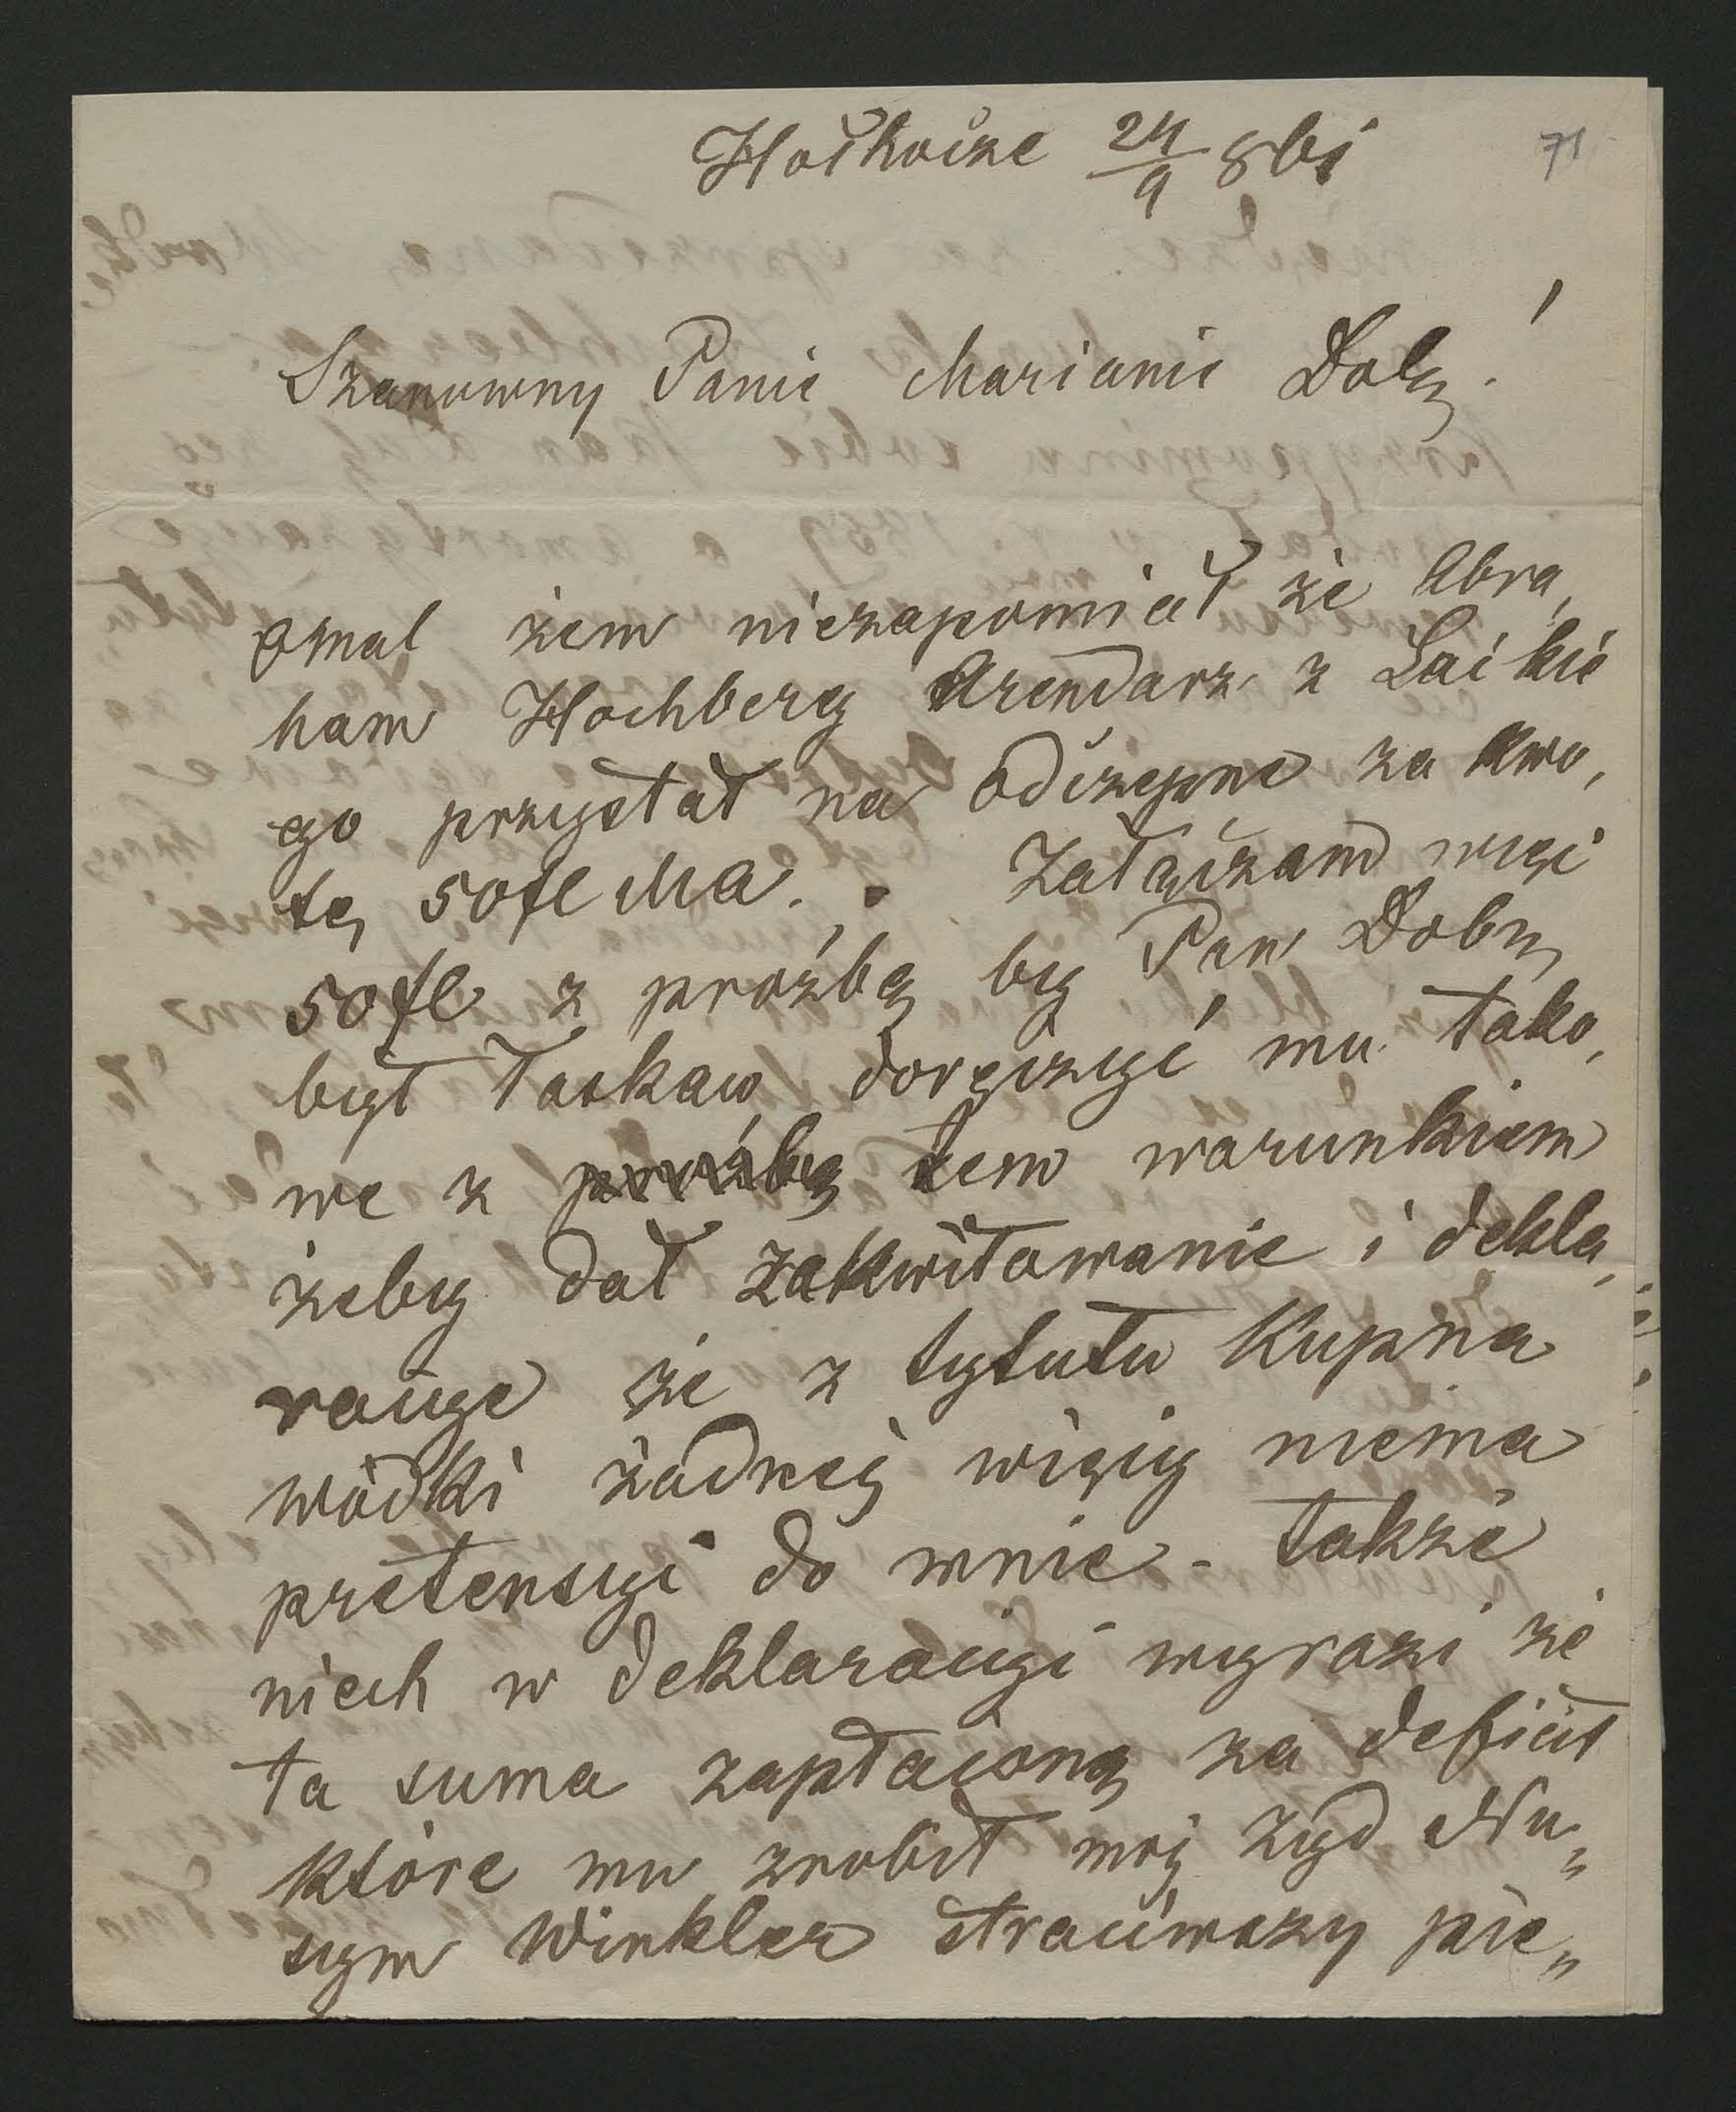 Hoćkowce 24/9 861
71
Szanowny Panie Marianie Dobr!
Omal żem niezapomiał że Abra,
ham Hochberg Arendarz z Laikie
go przystał na odczepne za kwo,
tę 50 fl Ma. Załączam więc
50 fl z prożbą by Pan Dobr,
był łaskaw doręczyć mu tako,
we z prożbą tem warunkiem
żeby dał zakwitowanie i dekla,
racyę że z tytułu kupna
wódki żadnej więcy niema
pretensyi do mnie - także
niech w deklaracyi wyrazi że
ta suma zapłaconą za deficit
które mu zrobił mój żyd Nu„
sym Winkler straciwszy pie„